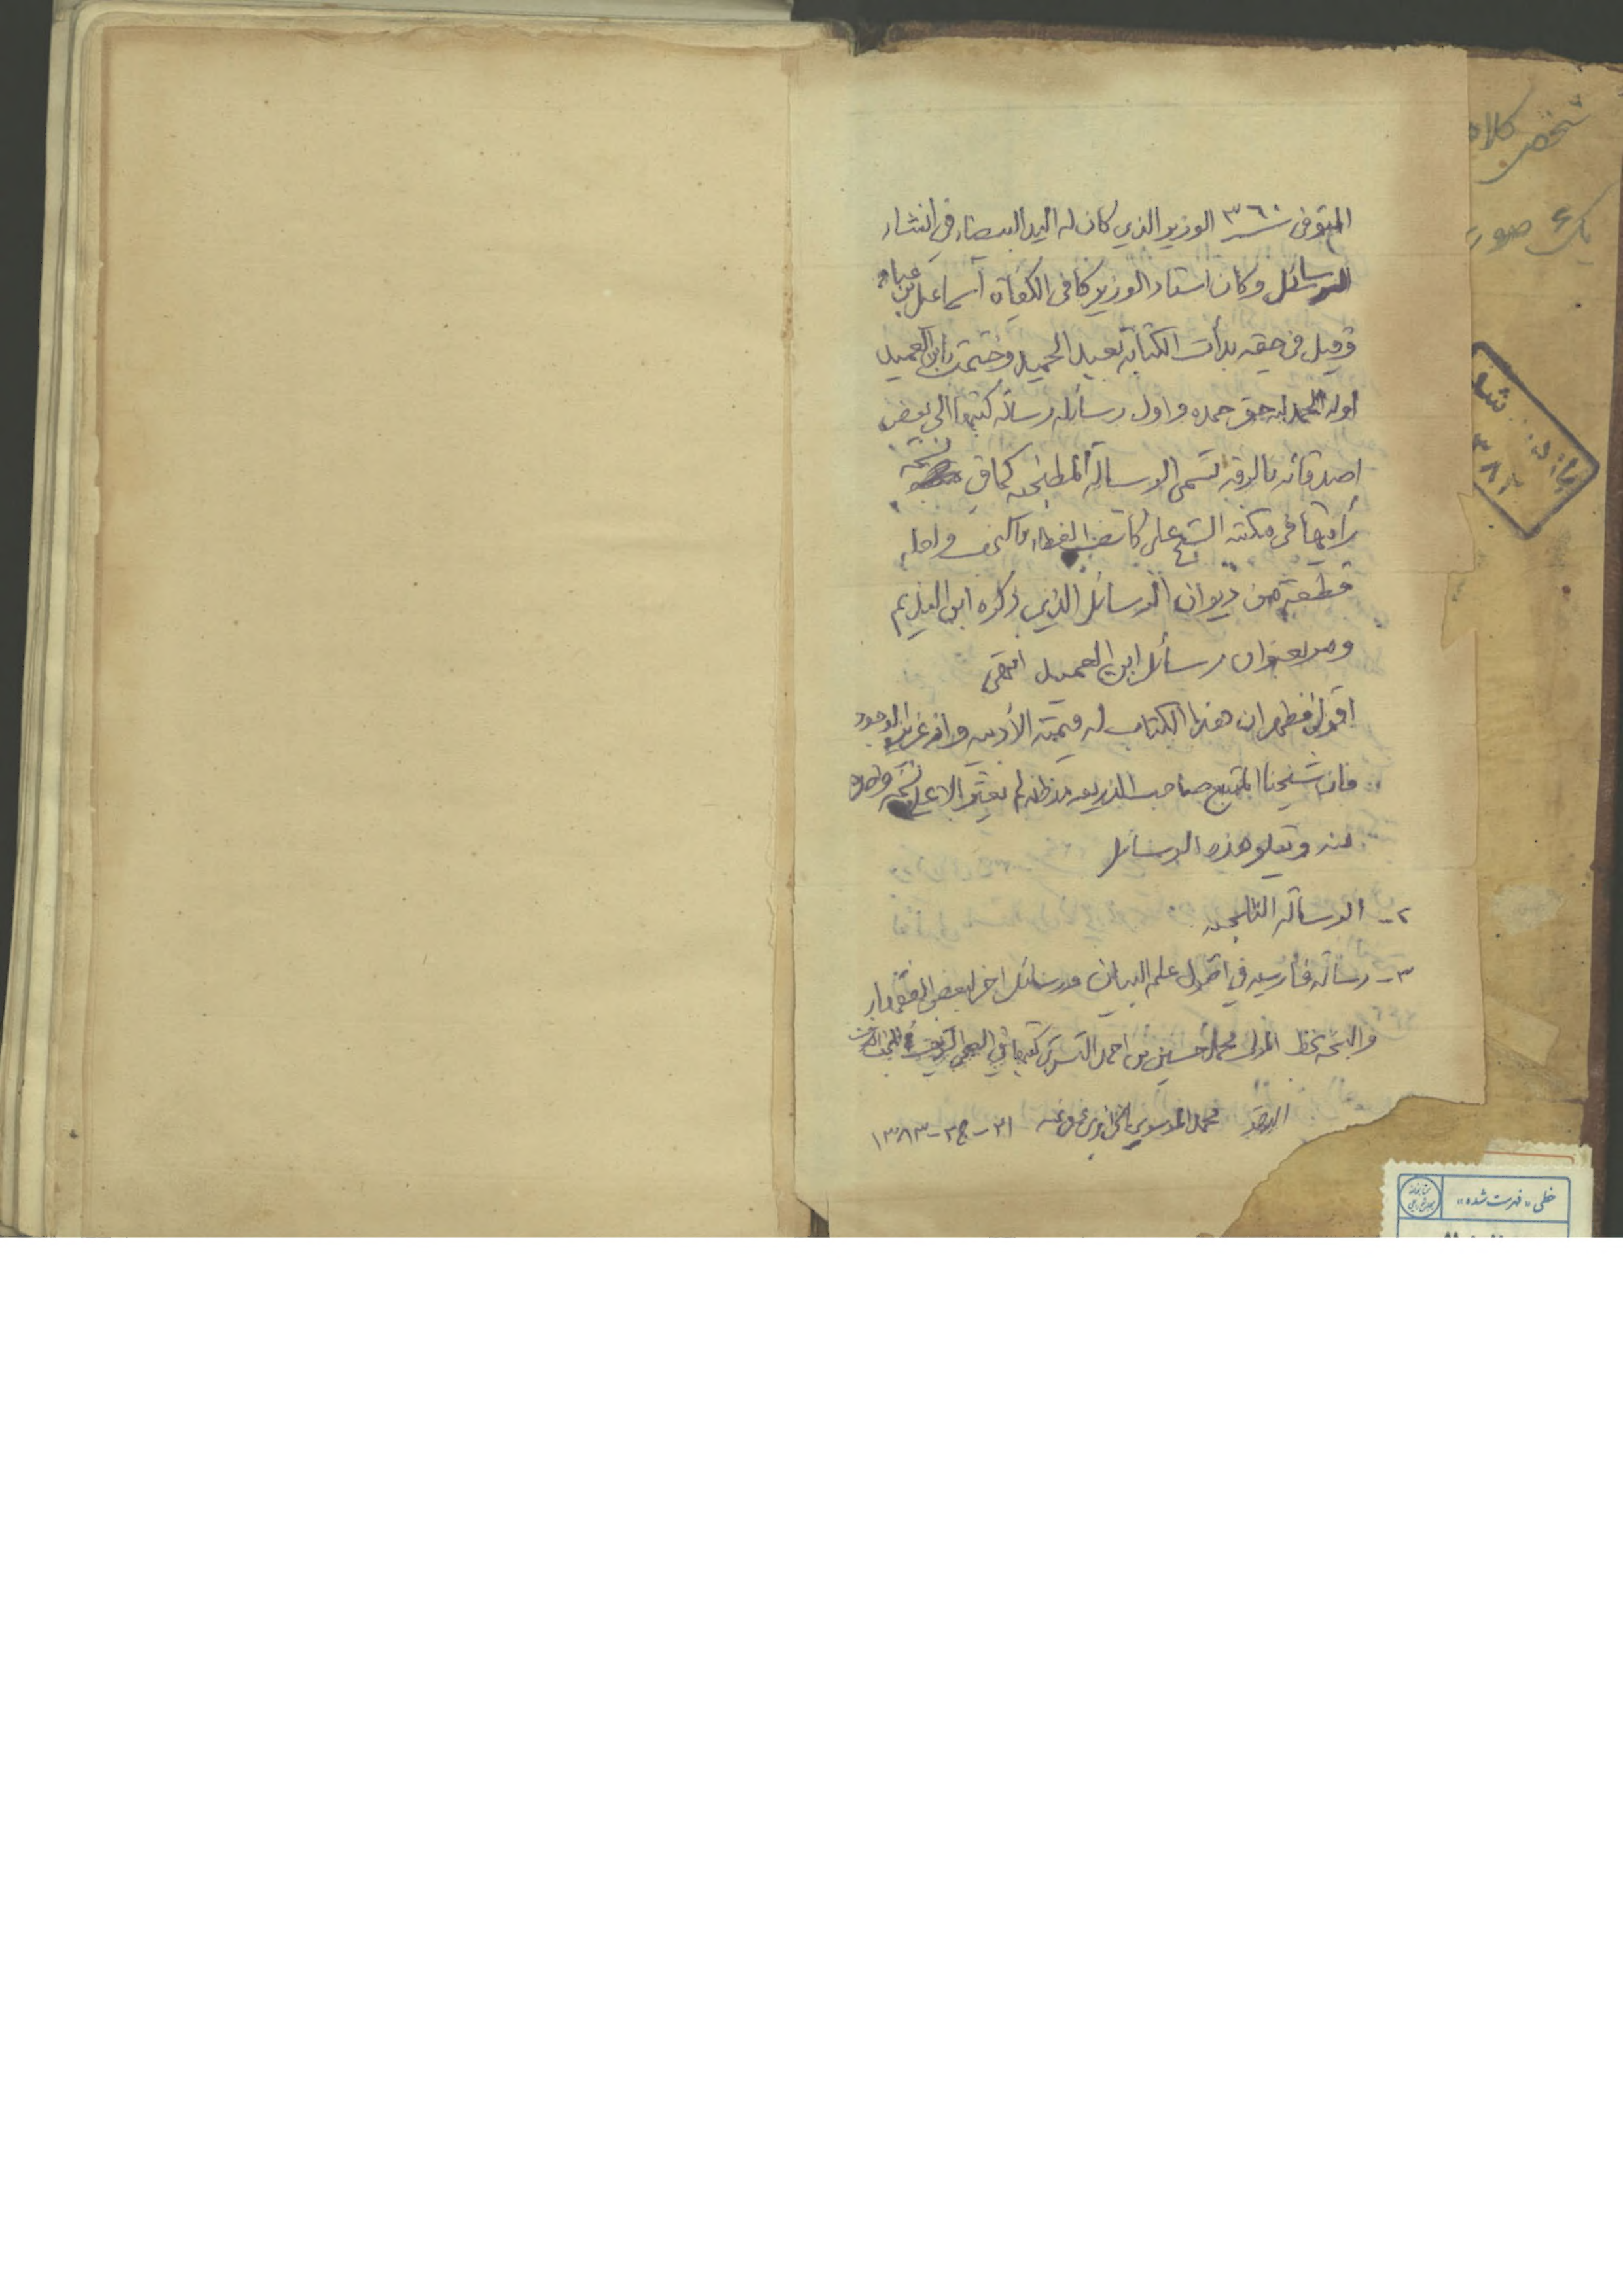 المتوفى سنة ٣٦٠ الوزير الذي كان له اليد البيضاء في انشاء
الرسائل وكان استاد الوزير كافى الكفاة اسماعيل بن عباد
وقيل في حقه بدأت الكتابة بعبد الحميد وختمت بابن العميد
اوله الحمد لله حق حمده و اول رسائله رسالة كتبها الى بعض
اصدقائه بالرقة تسمى الرسالة كما في نسخة
رأيتها في مكتبة الشيخ علي كاشف الغطاء
قطعة من ديوان الرسائل الذي ذكره ابن النديم
ومر بعنوان رسائل ابن العميد انتهى
اقول فظهر ان هذا الكتاب له قيمته الأدبيه وانه عزيز الوجود
فان شيخنا المتتبع صاحب الذريعه مد ظله لم يعثر الا على نسخة واحدة
منه ويتلو هذه الرسائل
٢- الرسالة
٣- رسالة فارسيه في اصول علم البيان ورسائل اخر لبعض
والنسخة بخط المولى محمد حسين بن احمد التستري كتبها في
محمد الموسوي الجزائري عفي عنه ٢١-ج٢-١٣٨٣
شخص كلاه
يك صور
باز شد
خطى «فهرست شده»